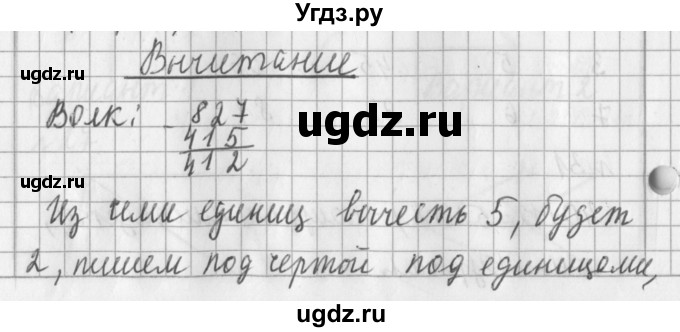 Угдз.ру
Вычитание
ugdz.ru
ugdz.ru
Волк: - 827
415
412
ugdz.ru
ugdz.ru
ugdz.ru
Из семи единиц вычесть 5, будет
2, пишем под чертой под единицами,
ugdz.ru
ugdz.ru